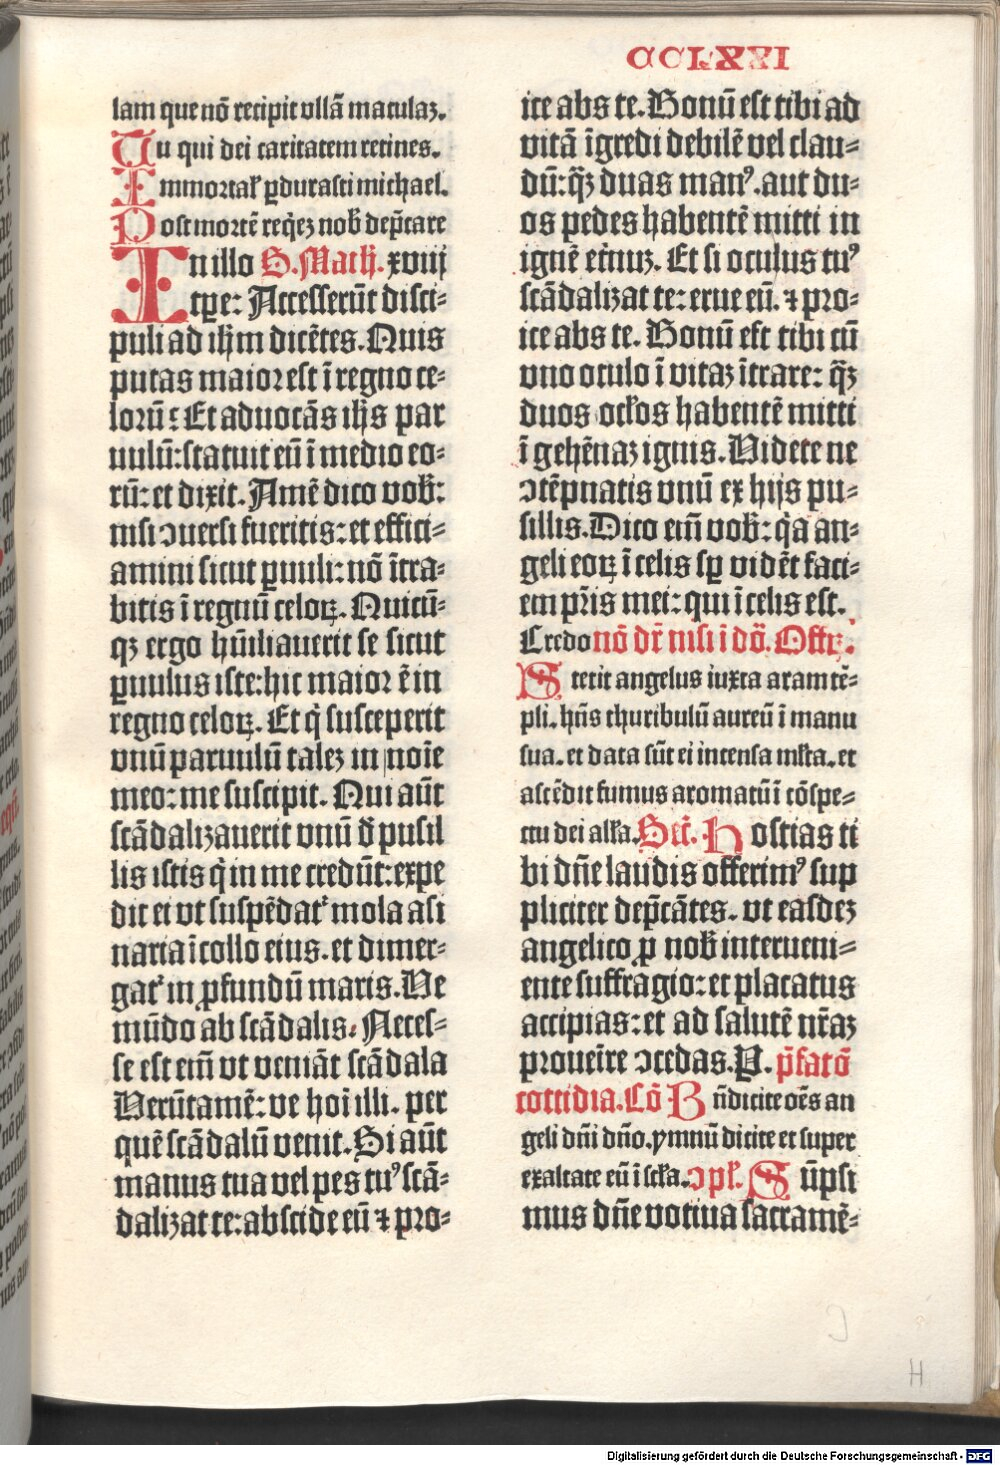 CCLXXI
lam que nõ recipit vllã maculaꝫ.
Tu qui dei caritatem retines.
Immortal' ꝑdurasti michael.
Post mortē reqͥeꝫ nob' dep̄care
In illo S. Math. xviij
tꝑe: Accesserūt disci⸗
puli ad ihm̄ dicētes. Quis
putas maior est ī regno ce⸗
lorū: Et aduocãs ihs̄ par
uulū: statuit eū ī medio eo⸗
rū: et dixit. Amē dico vob':
nisi ↄuersi fueritis: et effici⸗
amini sicut ꝑuuli: nõ ītra⸗
bitis ī regnū celoꝝ. Quicū⸗
qꝫ ergo hūiliauerit se sicut
ꝑuulus iste: hic maior ē in
regno celoꝝ. Et qͥ susceperit
vnū paruulū taleꝫ in noīe
meo: me suscipit. Qui aūt
scãdalizauerit vnū d' pusil
lis istis qͥ in me credūt: expe
dit ei vt suspēdat' mola asi
naria ī collo eius. et dimer⸗
gat' in ꝓfundū maris. Ve
mūdo ab scãdalis. Neces⸗
se est em̄ vt veniãt scãdala
Verūtamē: ve hoī illi. per
quē scãdalū venit. Si aūt
manus tua vel pes tuꝰ scã⸗
dalizat te: abscide eū ⁊ pro⸗
ice abs te. Bonū est tibi ad
vitã īgredi debilē vel clau⸗
dū: qͣꝫ duas manꝰ. aut du⸗
os pedes habentē mitti in
ignē et'nuꝫ. Et si oculus tuꝰ
scãdalizat te: erue eū. ⁊ pro⸗
ice abs te. Bonū est tibi cū
vno oculo ī vitaꝫ ītrare: qͣꝫ
duos oc'los habentē mitti
ī gehēnaꝫ ignis. Videte ne
ↄtēpnatis vnū ex hijs pu⸗
sillis. Dico em̄ vob': qͥa an⸗
geli eoꝝ ī celis sꝑ vidēt faci⸗
em pr̄is mei: qui ī celis est.
Credo nõ dr̄ nisi ī dõ. Offꝝ.
Stetit angelus iuxta aram tē⸗
pli. hn̄s thuribulū aureū ī manu
sua. et data sūt ei incensa ml'ta. et
ascēdit fumus aromatū ī cõspe⸗
ctu dei all'a. Sec̄. Hostias ti
bi dn̄e laudis offerimꝰ sup
pliciter dep̄cãtes. vt easdeꝫ
angelico ꝓ nob' interueni⸗
ente suffragio: et placatus
accipias: et ad salutē nr̄aꝫ
proueīre ↄcedas. P. p̄fatõ
cottidia. Cõ Bn̄dicite oēs an
geli dn̄i dn̄o. ymnū dicite et super
exaltate eū ī sc'la. ↄpl'. Sūpsi
mus dn̄e votiua sacramē⸗
H
Digitalisierung gefördert durch die Deutsche Forschungsgemeinschaft - DFG